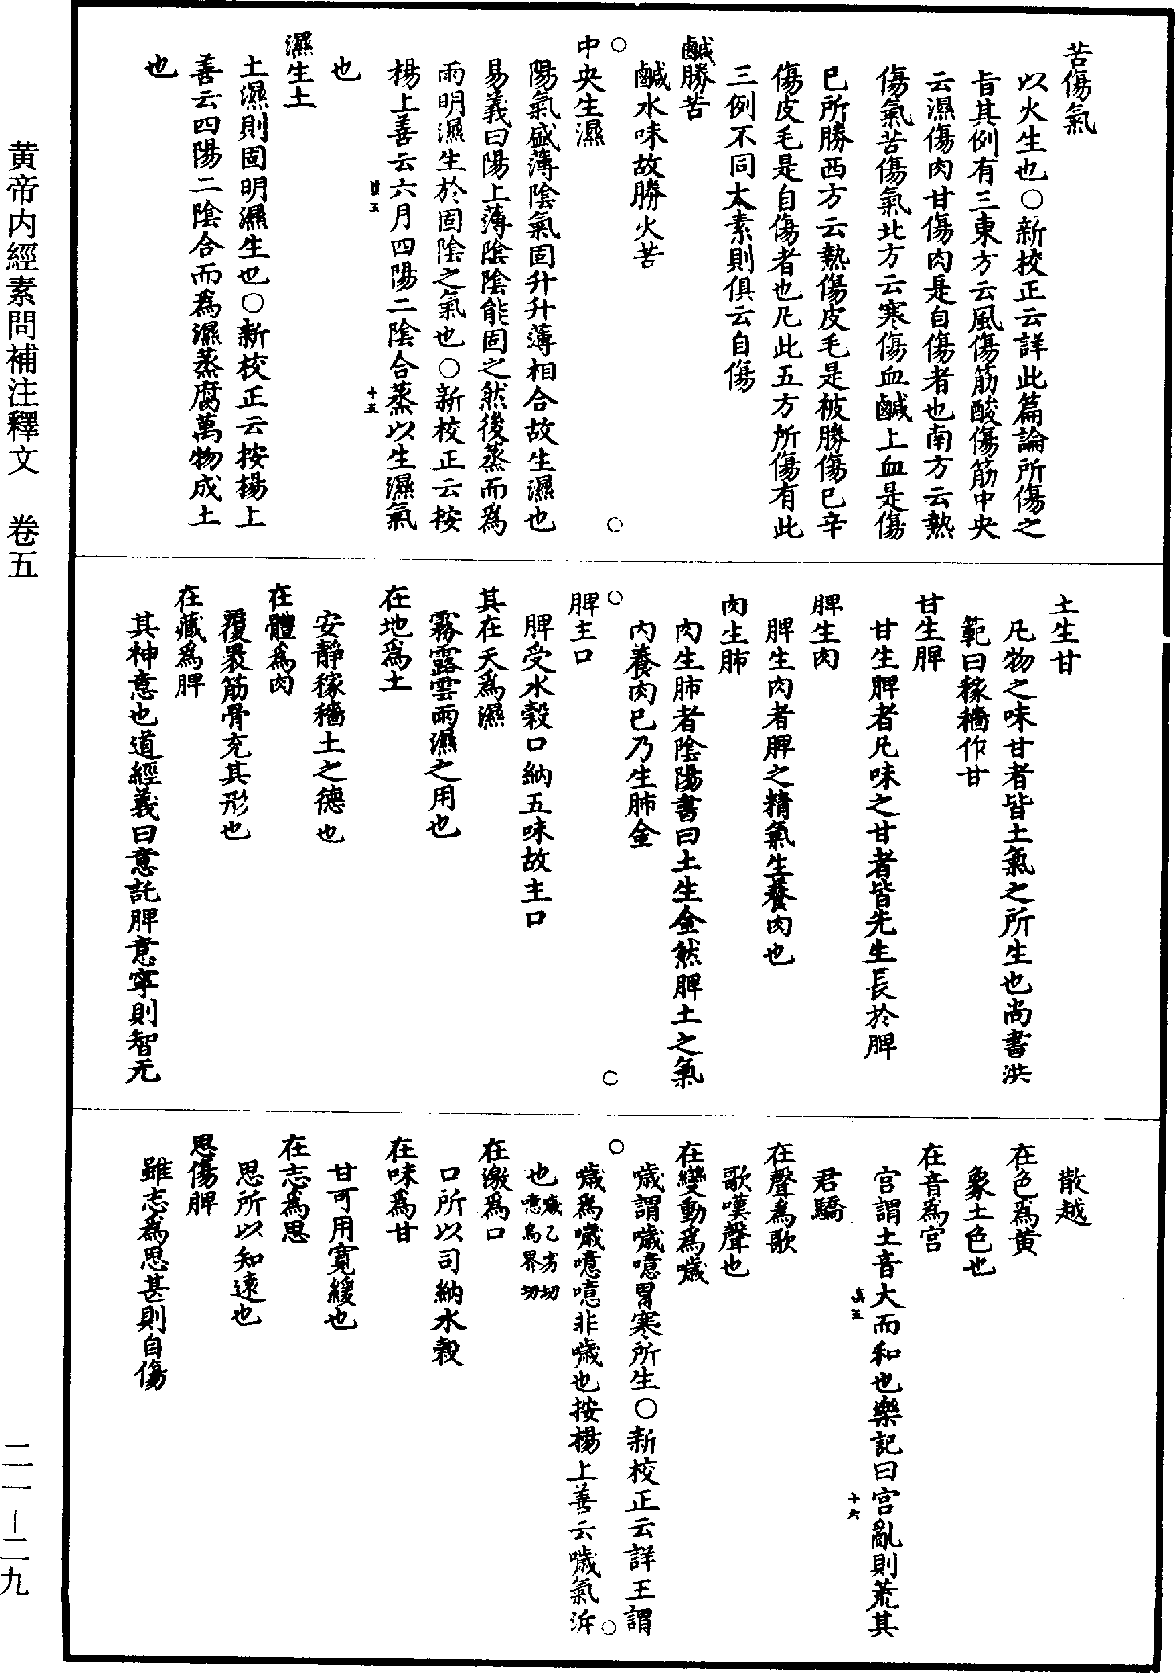 苦傷氣
以火生也○新校正云詳此篇論所傷之
旨其例有三東方云風傷筋酸傷筋中央
云濕傷肉甘傷肉是自傷者也南方云熱
傷氣苦傷氣北方云寒傷血鹹上血是傷
已所勝西方云熱傷皮毛是被勝傷已辛
傷皮毛是自傷者也凡此五方所傷有此
三例不同太素則俱云自傷
鹹勝苦
鹹水味故勝火苦
○
○
中央生濕
陽氣盛薄陰氣固升升薄相合故生濕也
易義曰陽上薄陰陰能固之然後蒸而為
雨明濕生於固陰之氣也○新校正云按
楊上善云六月四陽二陰合蒸以生濕氣
十五
也
濕生土
土濕則固明濕生也○新校正云按楊上
善云四陽二陰合而為濕蒸腐萬物成土
也
土生甘
凡物之味甘者皆土氣之所生也尚書洪
範曰稼穡作甘
甘生脾
甘生脾者凡味之甘者皆先生長於脾
脾生肉
脾生肉者脾之精氣生養肉也
肉生肺
肉生肺者陰陽書曰土生金然脾土之氣
內養肉已乃生肺金
○
○
脾主口
脾受水穀口納五味故主口
其在天為濕
霧露雲雨濕之用也
在地為土
安靜稼穡土之德也
在體為肉
覆裹筋骨充其形也
在藏為脾
其神意也道經義曰意託脾意寧則智无
散越
在色為黃
象土色也
在音為宮
宮謂土音大而和也樂記曰宮亂則荒其
十六
君驕
在聲為歌
歌嘆聲也
在變動為噦
噦謂噦噫胃寒所生○新校正云詳王謂
○
○
噦為噦噫噫非噦也按楊上善云噦氣泝
也噦乙劣切噫烏界切
在竅為口
口所以司納水穀
在味為甘
甘可用寬緩也
在志為思
思所以知遠也
思傷脾
雖志為思甚則自傷
黄帝内經素問補注釋文　卷五
二一—二九